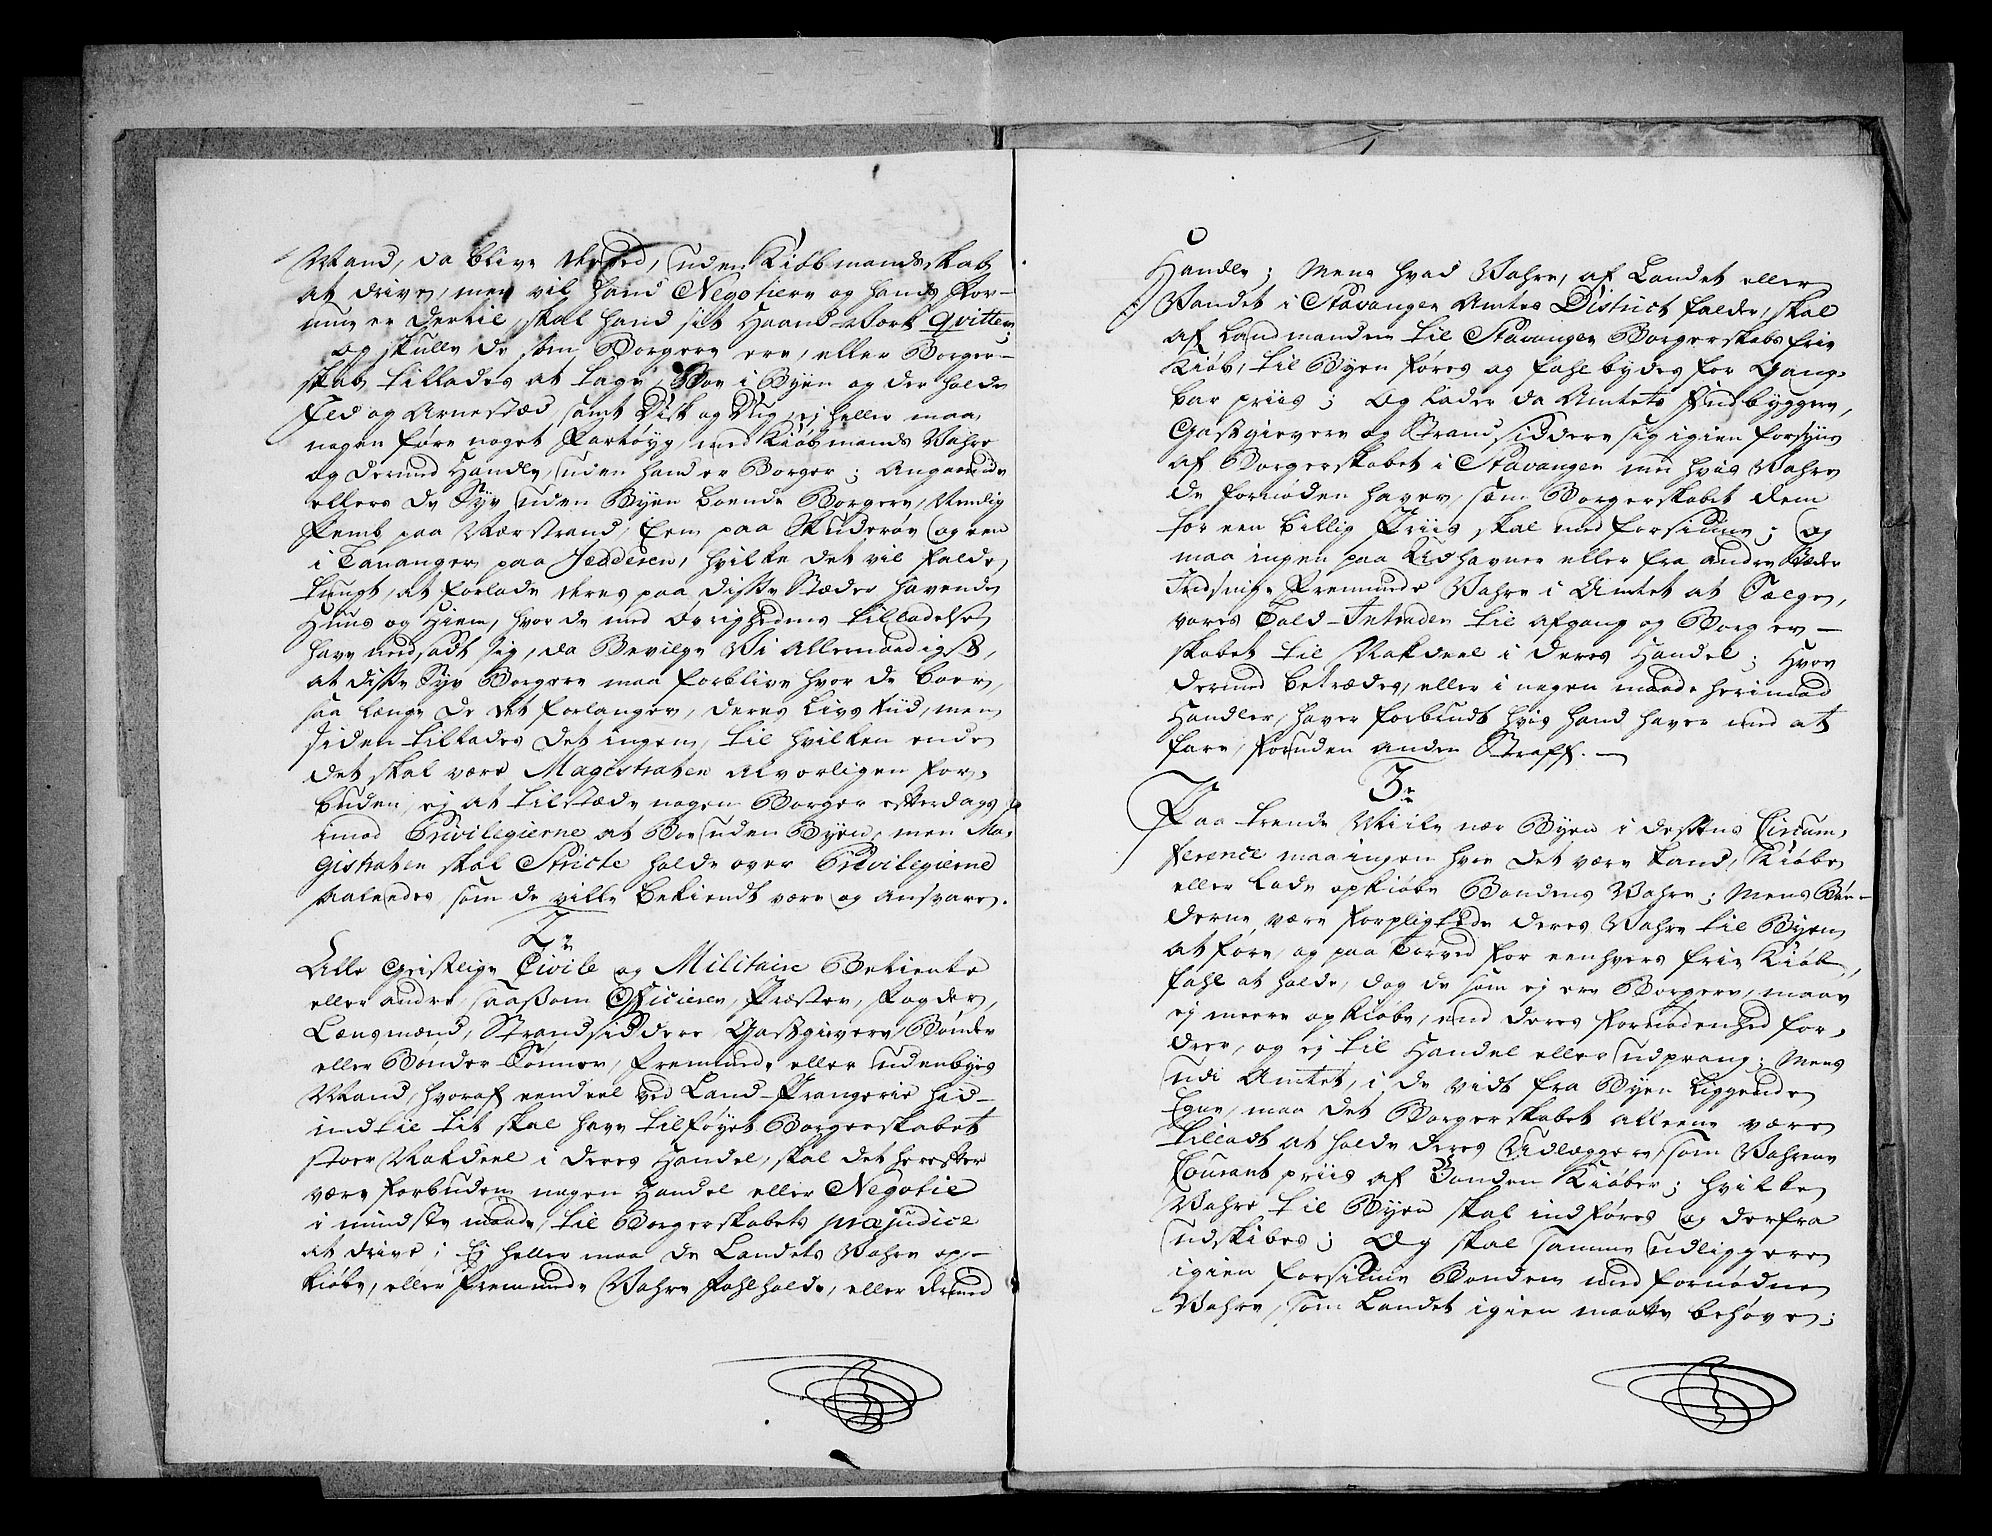 Mand, da blive derved, uden Kiøbmandskab
at drive, men vil hand Negotiere og hands For-
mue er dertil, skal hand sit Haand-Værk Qvittere,
og skulle de som Borgere ere, eller Borger-
skab tillades at tage, Boe i Byen og der holde
Ild og Arnestæd, samt Disk og Dug, ej heller maa
nogen føre noget Fartøyg med Kiøbmands Vahre
og dermed Handle, uden hand er Borger; Angaaende
ellers de Syv uden Byen boende Borgere, Nemlig
Femb paa Nærstrand, Een paa Skudenøe og een
i Tananger paa Jedderen, hvilke det vil falde
tungt, at forlade deres paa disse Stæder havende
Huus og Hiem, hvor de med Øvrighedens tilladelse
have nedsadt sig, da Bevilge Vi Allernaadigst,
at disse Syv Borgere maa forblive hvor de boer,
saa længe de det forlanger, deres Livs tiid, men
siden tillades det ingen, til hvilken ende
det skal være Magistraten alvorligen for-
buden, ej at tilstæde nogen Borger efterdags
imod Privilegierne at Boe uden Byen, men Ma-
gistraten skal Stricte holde over Privilegierne
saaledes som de ville bekiendt være og ansvare.
2.
Alle Geistlige Civile og Militaire Betiente
eller andre, saasom Officierer, Præster, Fogder,
Lænsmænd, Strandsiddere, Gastgievere, Bønder
eller Bønder-Sønner, fremmede eller udenbyes
Mænd, hvoraf eendeel ved Land-Prangerie hid-
indtil tit skal have tilføyet Borgerskabet
stoer Nakdeel i deres Handel, skal det herefter
være forbuden nogen Handel eller Negotie
i mindste maade, til Borgerskabets præjudice
at drive; Ej heller maa de Landets Vahre op-
kiøbe, eller fremmede Vahre fahlholde, eller dermed
Handle; Mens hvad Vahre, af Landet eller
Vandet i Stavanger Amtes District falder, skal
af Landmanden til Stavanger Borgerskabs frie
Kiøb, til Byen føres og fahl bydes for Gang-
bar priis; Og lader da Amtets Indbyggere,
Gastgievere og Strandsiddere sig igien forsyne
af Borgerskabet i Stavanger med hvis Vahre
de fornøden haver, som Borgerskabet dem
for een billig Priis skal med forsiune; og
maa ingen paa Udhavner eller fra andre Stæder
Indsnige Fremmede Vahre i Amtet at Sælge,
vores Told-Intrader til afgang og Borger-
skabet til Nakdeel i deres Handel; Hvor
dermed betrædes, eller i nogen maade herimod
Handler, haver forbrudt hvis hand haver med at
fare, foruden anden Straff.
3.
Paa trende Miile nær Byen i dessens Circum-
ference maa ingen hvo det være kand, Kiøbe
eller lade opkiøbe Bondens Vahre; Mens Bøn-
derne være forpligtede deres Vahre til Byen
at føre, og paa Torved for eenhvers frie Kiøb
fahl at holde, dog de som ej ere Borgere, maae
ej meere opkiøbe, end deres fornødenhed for-
drer, og ej til Handel eller udprang; Mens
udi Amtet, i de vidt fra Byen liggende
Egne, maa det Borgerskabet alleene være
tilladt at holde deres Udliggere, som Vahrene
Courant priis af Bonden Kiøber; hvilke
Vahre til Byen skal indføres og derfra
udskibes; Og skal samme udliggere
igien forsiune Bonden med fornødne
Vahre, som Landet igien maatte behøve;